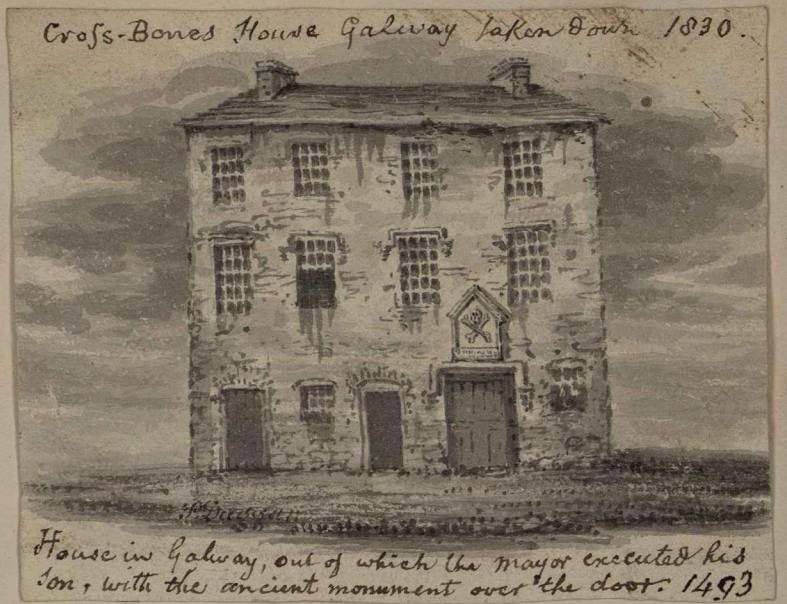 Croſs-Bones House Galway taken down 1830.
House in Galway, out of which the mayor executed his
son, with the ancient monument over the door. 1493